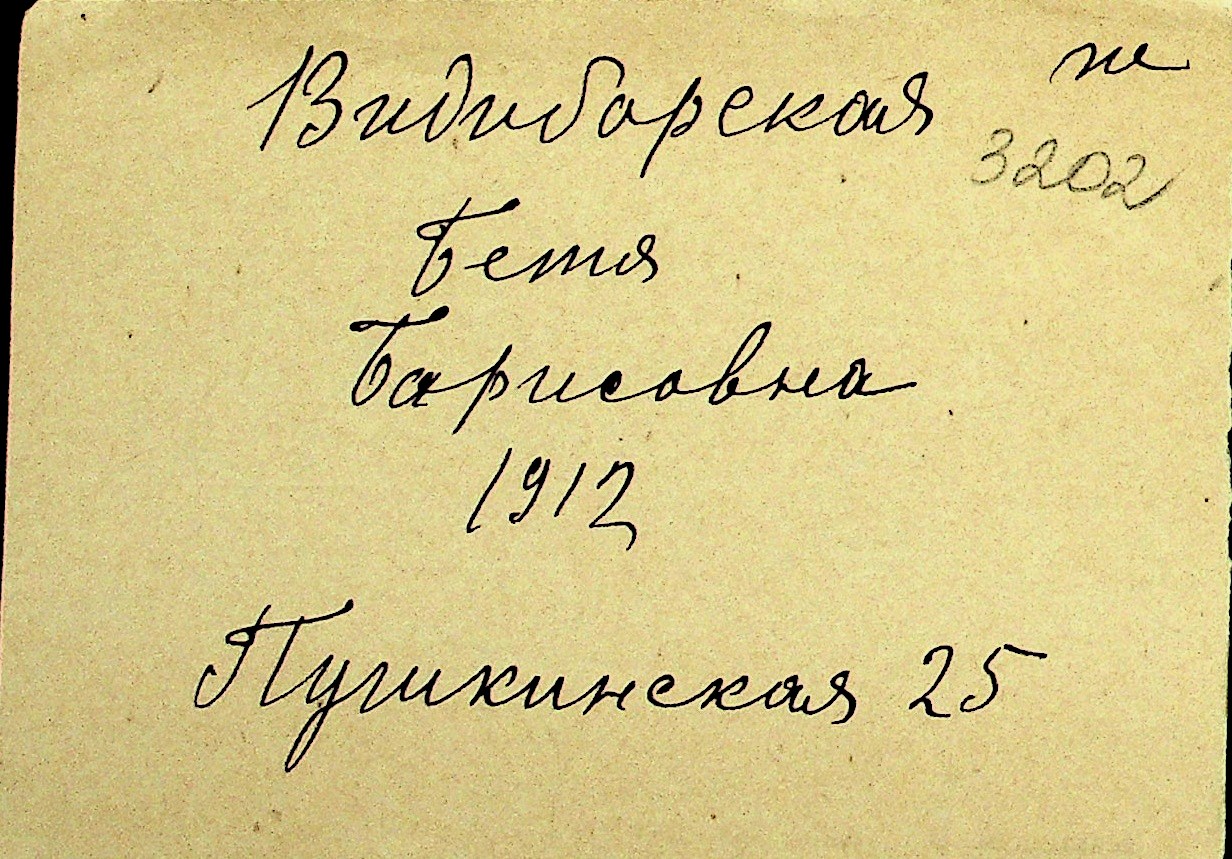 Видиборская ж
3202
Бетя
Барисовна
1912
Пушкинская 25